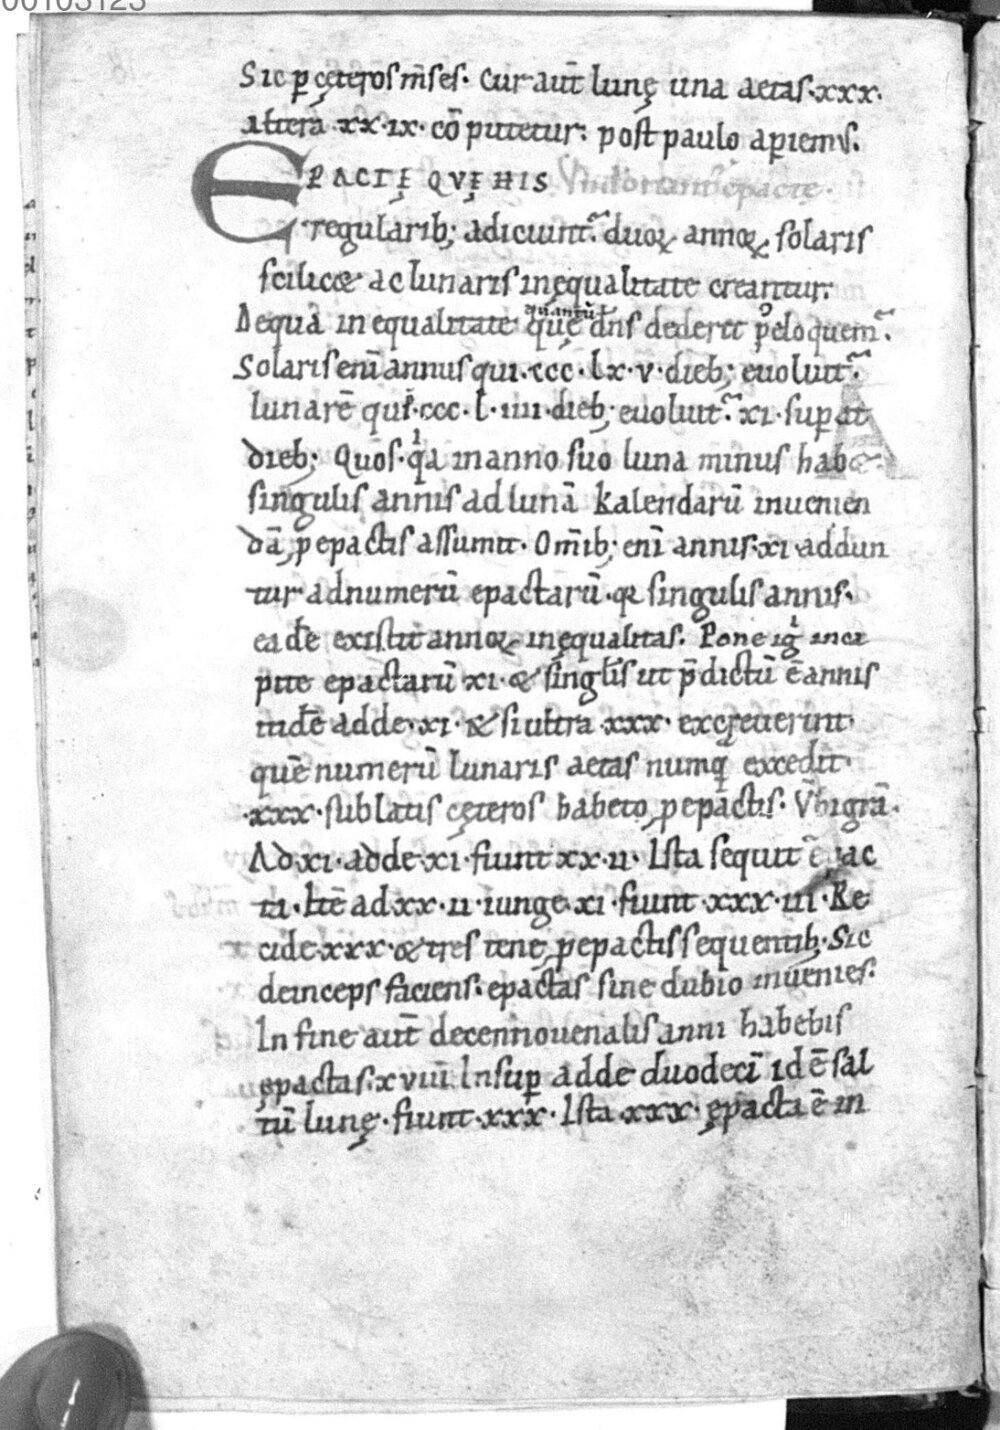 00103123
Sic p̲ cęteros m̄ses. Cur aut̄ lunę una aetas .xxx.
altera .xx.ix. cō putetur: post paulo apiem᷒.
EPACTĘ QVĘ HIS Vnde oriant᷑ epactę.
regularib; adiciunt᷑. duoꝝ annoꝝ, solaris
scilic& ac lunaris inęqualitate creantur.
De qua inequalitate quantū quę dn̄s dederit ꝓeloquem᷑.
Solaris enī annus qui .ccc.lx.v. dieb; euoluit᷑.
lunarē qui .ccc.l.iiii. dieb; euoluit᷑ .xi. suꝑat
dieb; Quos. qͥa in anno suo luna minus hab&
singulis annis ad lunā kalendarū inuenien
dā, ꝓ epactis assumit. Om̄ib; enī annis .xi. addun
tur ad numerū epactarū. qꝛ singulis annis.
eadē existit annoꝝ inęqualitas. Pone igͥ inci
pite epactarū .xi. & singlis ut p̄dictū ē annis
itidē adde .xi. & si ultra .xxx. excreuerint.
quē numerū lunaris aetas numꝗ excedit.
.xxx. sublatis cęteros habeto, ꝓ epactis. Vbi grā.
Ad .xi. adde .xi. fiunt .xx.ii. Ista sequit᷑ epac
ti. Itē ad .xx.ii. iunge .xi. fiunt .xxx.iii. Re
cide .xxx. & tres tene, ꝓ epactis sequentib; Sic
deinceps faciens. epactas sine dubio inuenies.
In fine aut̄ decennouenalis anni habebis
epactas .xviii. Insuꝑ adde duodecī idē sal
tū lunę. fiunt .xxx. Ista .xxx. ępacta ē in